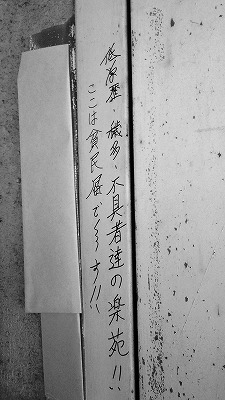 低学歴・穢多・不具者達の楽苑!!
ここは貧民屈で〜〜す!!